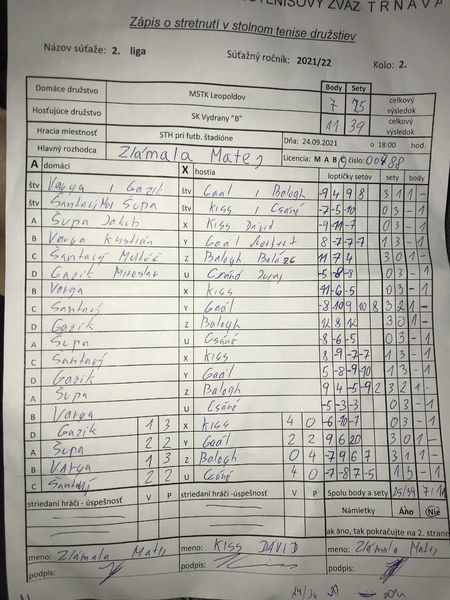 STOLNOTENISOVÝ ZVÄZ TRNAVA
Zápis o stretnutí v stolnom tenise družstiev
Názov súťaže: 2. liga Súťažný ročník: 2021/22 Kolo: 2.
Body Sety
Domáce družstvo MSTK Leopoldov 7 25 celkový výsledok
Hosťujúce družstvo SK Vydrany "B" 11 39 celkový výsledok
Hracia miestnosť STH pri futb. štadióne Dňa: 24.09.2021 o 18:00 hod.
Hlavný rozhodca Zlámala Matej Licencia: M A B C číslo: 00788
A domáci X hostia loptičky setov sety body
štv Varga / Gazík štv Gaál / Balogh -9 4 9 8 3 1 1 -
štv Šantavý Šupa štv Kiss / Csánó -7 -5 -10 0 3 - 1
A Šupa Jakub X Kiss Dávid -9 -11 -7 0 3 - 1
B Varga Kristián Y Gaál -8 7 -7 -7 1 3 - 1
C Šantavý Z Balogh 11 7 4 3 0 1 -
D Gazík Miroslav U Csánó -5 -8 -8 0 3 - 1
B Varga X Kiss -11 -6 -5 0 3 - 1
C Šantavý Y Gaál -8 10 9 -10 8 3 2 1 -
D Gazík Z Balogh 12 8 12 3 0 1 -
A Šupa U Csánó -8 -6 -5 0 3 - 1
C Šantavý X Kiss 8 -9 -7 -7 1 3 - 1
D Gazík Y Gaál 5 -8 -9 -10 1 3 - 1
A Šupa Z Balogh 9 4 -5 -9 2 3 2 1 -
B Varga U Csánó -5 -3 -3 0 3 - 1
D Gazík 1 3 X Kiss 4 0 -6 -10 -7 0 3 - 1
A Šupa 2 2 Y Gaál 2 2 9 6 20 3 0 1 -
B Varga 1 3 Z Balogh 0 4 -7 9 6 7 3 1 1 -
C Šantavý 2 2 U 4 0 -7 -8 7 -5 1 3 - 1
striedaní hráči - úspešnosť V P striedaní hráči -úspešnosť V P Spolu body a sety 25/39 7/11
Námietky Áno Nie
ak áno, tak pokračujte na 2. strane
meno: Zlámala Matej meno: KISS DÁVID meno: Zlámala Matej
podpis: podpis: podpis: